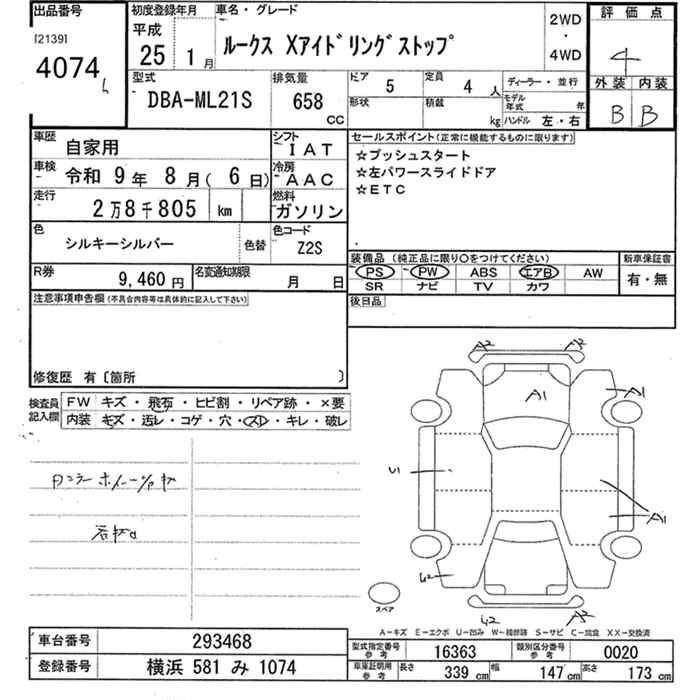 出品番号
[2139]
4074
初度登録年月
平成
25 1月
車名・グレード
ルークス Xアイドリングストップ
2WD
・
4WD
評価点
4
外装 内装
B B
型式
DBA-ML21S
排気量
658
CC
ドア
5
定員
4人
形状
積載
kg
ディーラー・並行
モデル年式 年
ハンドル 左・右
車歴
自家用
シフト
IAT
車検
令和 9年 8月( 6日)
冷房
AAC
走行
2万8千805 km
燃料
ガソリン
色
シルキーシルバー
色替
色コード
Z2S
R券
9,460円
名変通知期限
月 日
セールスポイント(正常に機能するものに限ります)
☆プッシュスタート
☆左パワースライドドア
☆ETC
装備品(純正品に限り○をつけてください)
PS PW ABS エアB AW
SR ナビ TV カワ
新車保証書
有・無
後日品
注意事項申告欄(不具合内容等は具体的に記入して下さい)
修復歴 有〔箇所 〕
検査員記入欄
FW キズ・飛石・ヒビ割・リペア跡・×要
内装 キズ・汚レ・コゲ・穴・スレ・キレ・破レ
A2 A2
A1
A1
U1
A1
U2
U2 A2
スペア
A-キズ E-エクボ U-凹み W-補修跡 S-サビ C-腐食 XX-交換済
車台番号
293468
登録番号
横浜 581 み 1074
型式指定番号
参考
16363
類別区分番号
参考
0020
車庫証明用
参考
長さ 339cm 幅 147cm 高さ 173cm